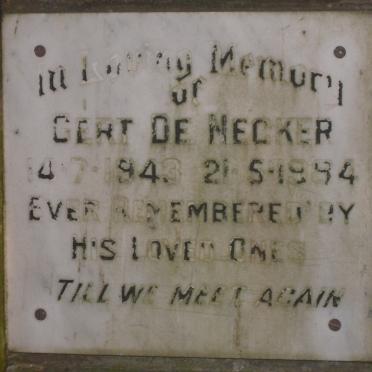 In Loving Memory
of
Gert De Necker
4-7-1943 21-5-1994
Ever Remembered by
His Loved Ones
Till we meet again